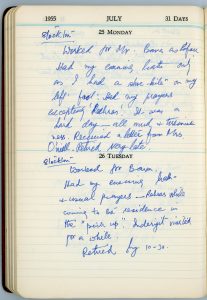 1955 JULY 31 DAYS
25 MONDAY
"Stockton"
Worked for Mr. Bawa as before
Had my evening
as I had a shoe-bite on my
left foot. Had my prayers
excepting "Rehras". It was a
hard day – all mud &
ness. Received a letter from Mrs
O'neill. Retired very late
"Stockton"
26 TUESDAY
Worked for Bawa.
Had my evening
& usual prayers – Rehras while
coming to the residence in
the "pick up". Inderjit visited
for a while.
Retired by 10-30.